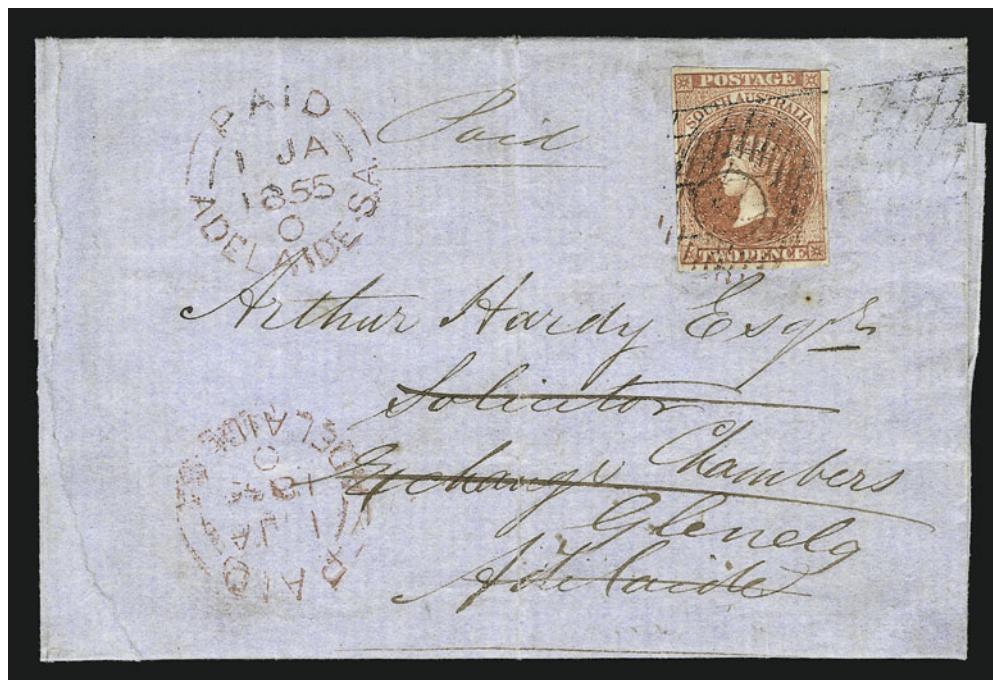 PAID
1 JA
1855
0
ADELAIDE S.A.
Paid
POSTAGE
SOUTH AUSTRALIA
TWO PENCE
Arthur Hardy Esqr
Solicitor
Exchange Chambers
Glenelg
Adelaide
PAID
1
JA
0
ADELAIDE